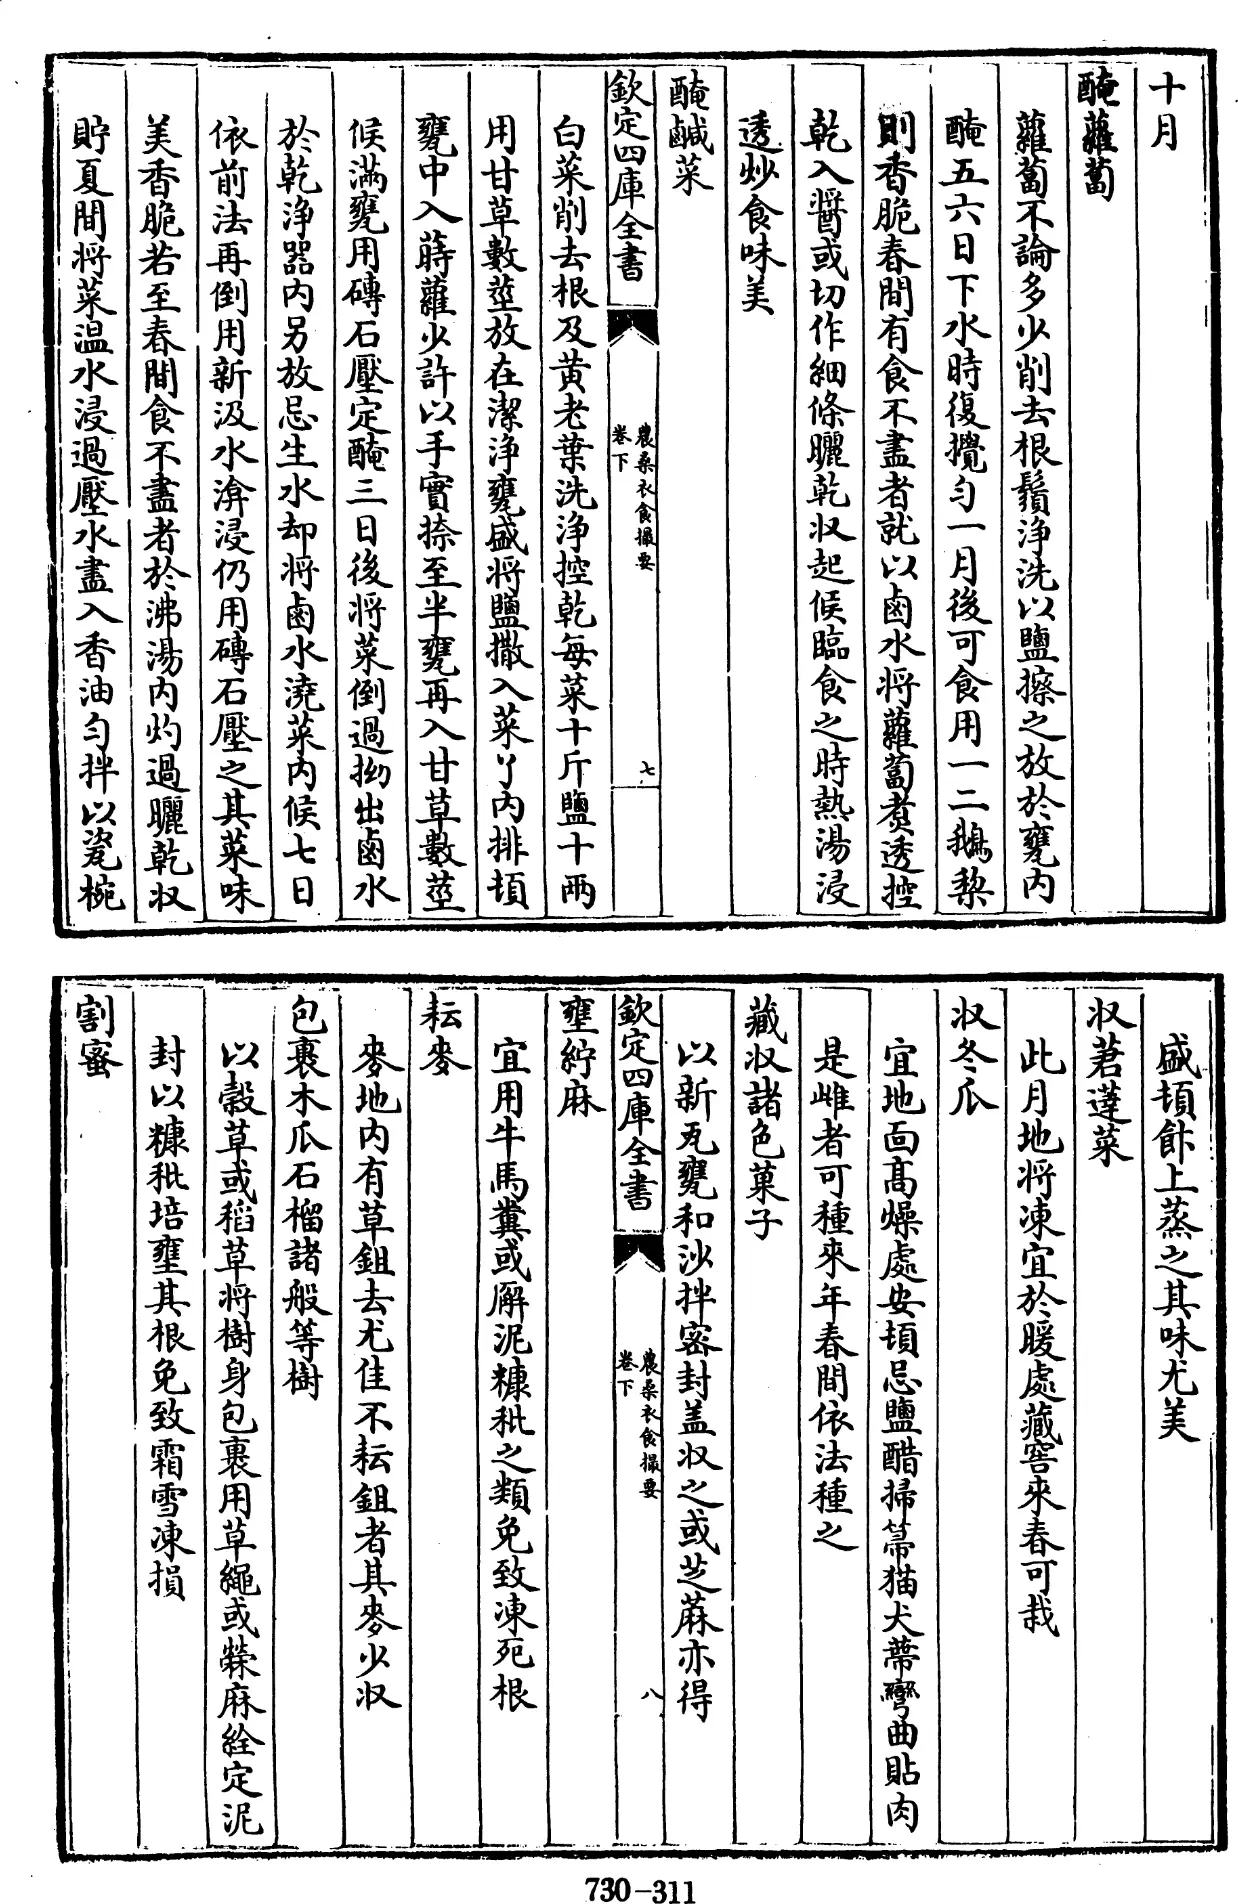 十月
醃蘿蔔
蘿蔔不論多少削去根鬚浄洗以鹽擦之放於甕内
醃五六日下水時復攪匀一月後可食用一二鵝棃
則香脆春間有食不盡者就以鹵水將蘿蔔煑透控
乾入醤或切作細條曬乾収起候臨食之時熱湯浸
透炒食味美
醃鹹菜
欽定四庫全書
農桑衣食撮要
卷下
七
白菜削去根及黄老葉洗浄控乾每菜十斤鹽十兩
用甘草數莖放在潔浄甕盛將鹽撒入菜丫内排頓
甕中入蒔蘿少許以手實捺至半甕再入甘草數莖
候滿甕用磚石壓定醃三日後將菜倒過拗出鹵水
於乾浄器内另放忌生水却將鹵水澆菜内候七日
依前法再倒用新汲水渰浸仍用磚石壓之其菜味
美香脆若至春間食不盡者於沸湯内灼過曬乾収
貯夏間將菜温水浸過壓水盡入香油匀拌以瓷椀
盛頓飰上蒸之其味尤美
収莙蓬菜
此月地將凍宜於暖處藏窖來春可栽
収冬瓜
宜地面髙燥處安頓忌鹽醋掃箒猫犬蔕彎曲貼肉
是雌者可種來年春間依法種之
藏収諸色菓子
以新瓦甕和沙拌密封盖収之或芝蔴亦得
欽定四庫全書
農桑衣食撮要
卷下
八
壅紵麻
宜用牛馬糞或廨泥糠粃之類免致凍死根
耘麥
麥地内有草鉏去尤佳不耘鉏者其麥少収
包裹木瓜石榴諸般等樹
以穀草或稻草將樹身包裹用草繩或檾麻絟定泥
封以糠粃培壅其根免致霜雪凍損
割蜜
730-311